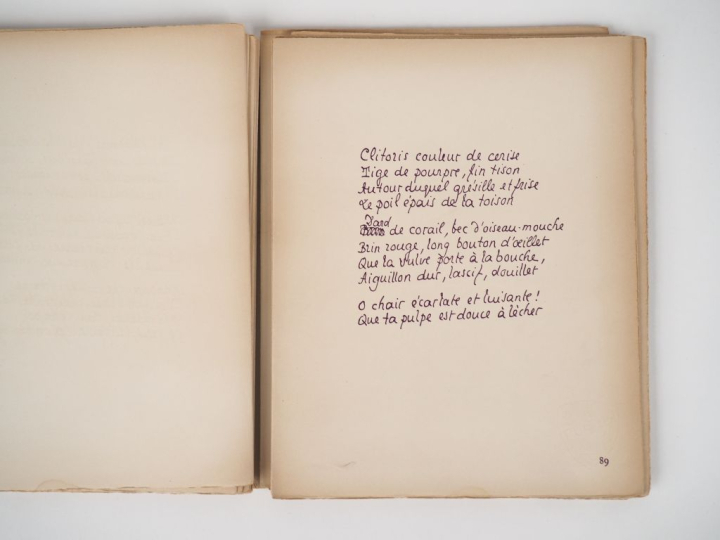 Clitoris couleur de cerise
Tige de pourpre, fin tison
Autour duquel grésille et frise
Le poil épais de la toison
Dard de corail, bec d'oiseau-mouche
Brin rouge, long bouton d'œillet
Que la vulve porte à la bouche,
Aiguillon dur, lascif, douillet
O chair écarlate et luisante !
Que ta pulpe est douce à lécher
89